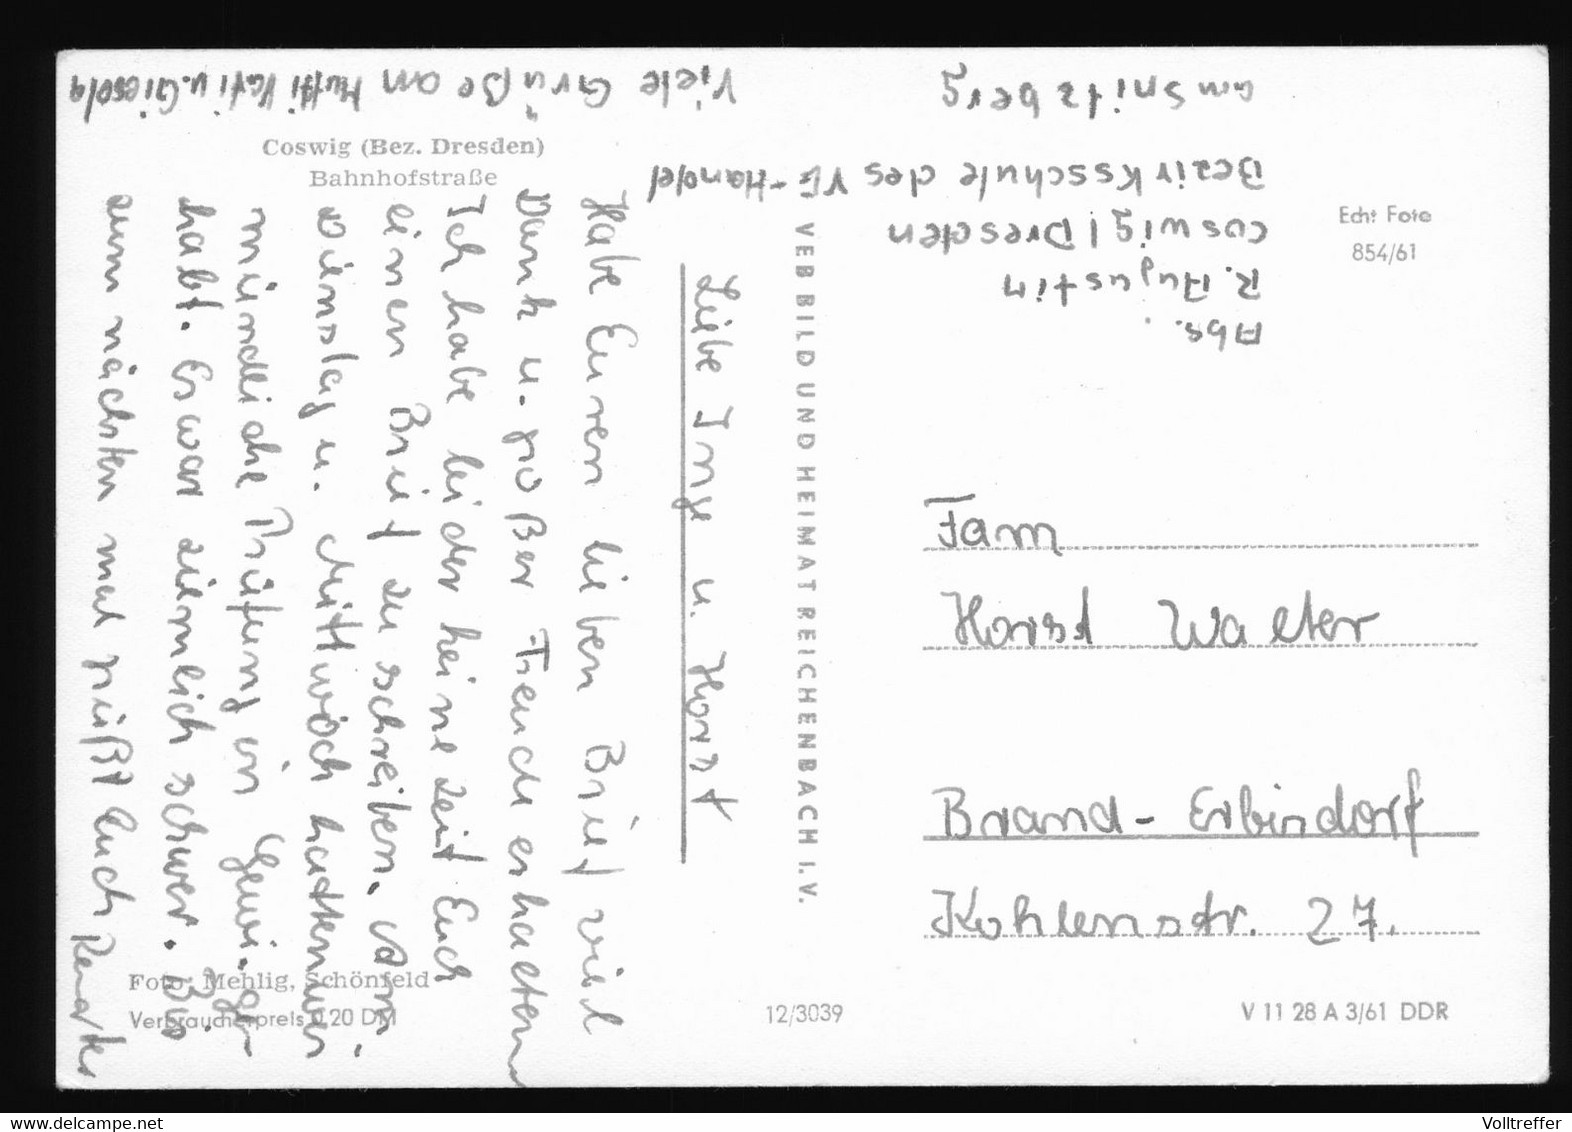 Coswig (Bez. Dresden)
Bahnhofstraße
Liebe Inge u. Horst
Habe Euren lieben Brief viel
Dank u. großer Freude erhalten
Ich habe leider keine Zeit Euch
einen Brief zu schreiben. Da wir
Dienstag u. Mittwoch hatten wir
mündliche Prüfung in Gewi. ge-
habt. Es war ziemlich schwer. Bis
zum nächsten mal grüßt Euch
Viele Grüße an Mutti Vati u. Giesela
Abs.
R. Augustin
Coswig / Dresden
Bezirksschule des VE-Handel
am Snitzberg
VEB BILD UND HEIMAT REICHENBACH I. V.
Echt Foto
854/61
Fam
Horst Walter
Brand-Erbisdorf
Kohlenstr. 27.
Foto: Mehlig, Schönfeld
Verbraucherpreis 0,20 DM
12/3039
V 11 28 A 3/61 DDR
www.delcampe.net
Volltreffer